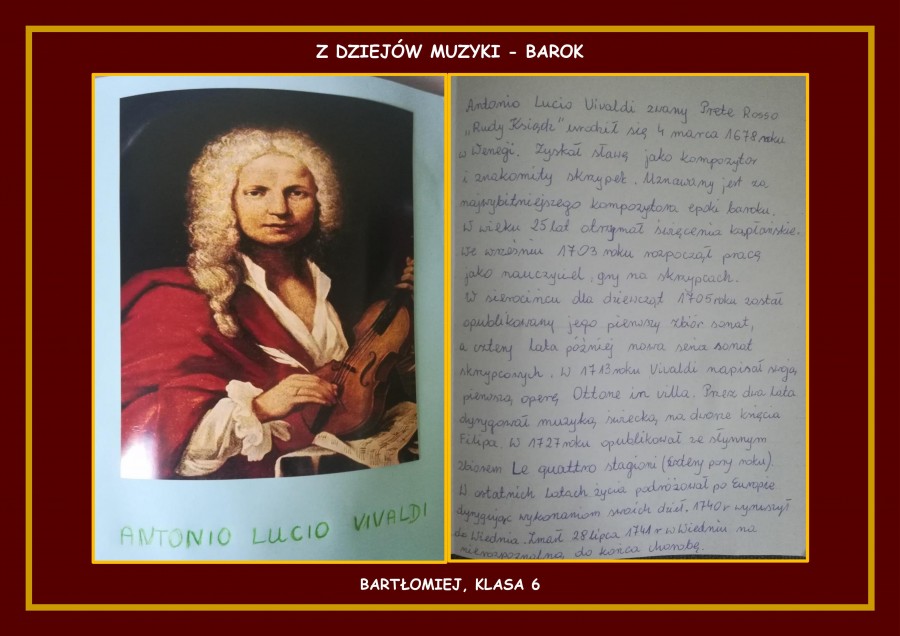 Z DZIEJÓW MUZYKI - BAROK
ANTONIO LUCIO VIVALDI
Antonio Lucio Vivaldi zwany Prete Rosso
„Rudy Ksiądz" urodził się 4 marca 1678 roku
w Wenecji. Zyskał sławę jako kompozytor
i znakomity skrzypek. Uznawany jest za
najwybitniejszego kompozytora epoki baroku.
W wieku 25 lat otrzymał święcenia kapłańskie.
We wrześniu 1703 roku rozpoczął pracę
jako nauczyciel, gry na skrzypcach.
W sierocińcu dla dziewcząt 1705 roku został
opublikowany jego pierwszy zbiór sonat,
a cztery lata później nowa seria sonat
skrzypcowych. W 1713 roku Vivaldi napisał swoją
pierwszą operę Ottone in villa. Przez dwa lata
dyrygował muzyką świecką na dworze księcia
Filipa. W 1727 roku opublikował ze słynnym
zbiorem Le quattro stagioni (Cztery pory roku).
W ostatnich latach życia podróżował po Europie
dyrygując wykonaniom swoich dzieł. 1740 r wyruszył
do Wiednia. Zmarł 28 lipca 1741 r w Wiedniu na
nierozpoznalną do końca chorobę.
BARTŁOMIEJ, KLASA 6